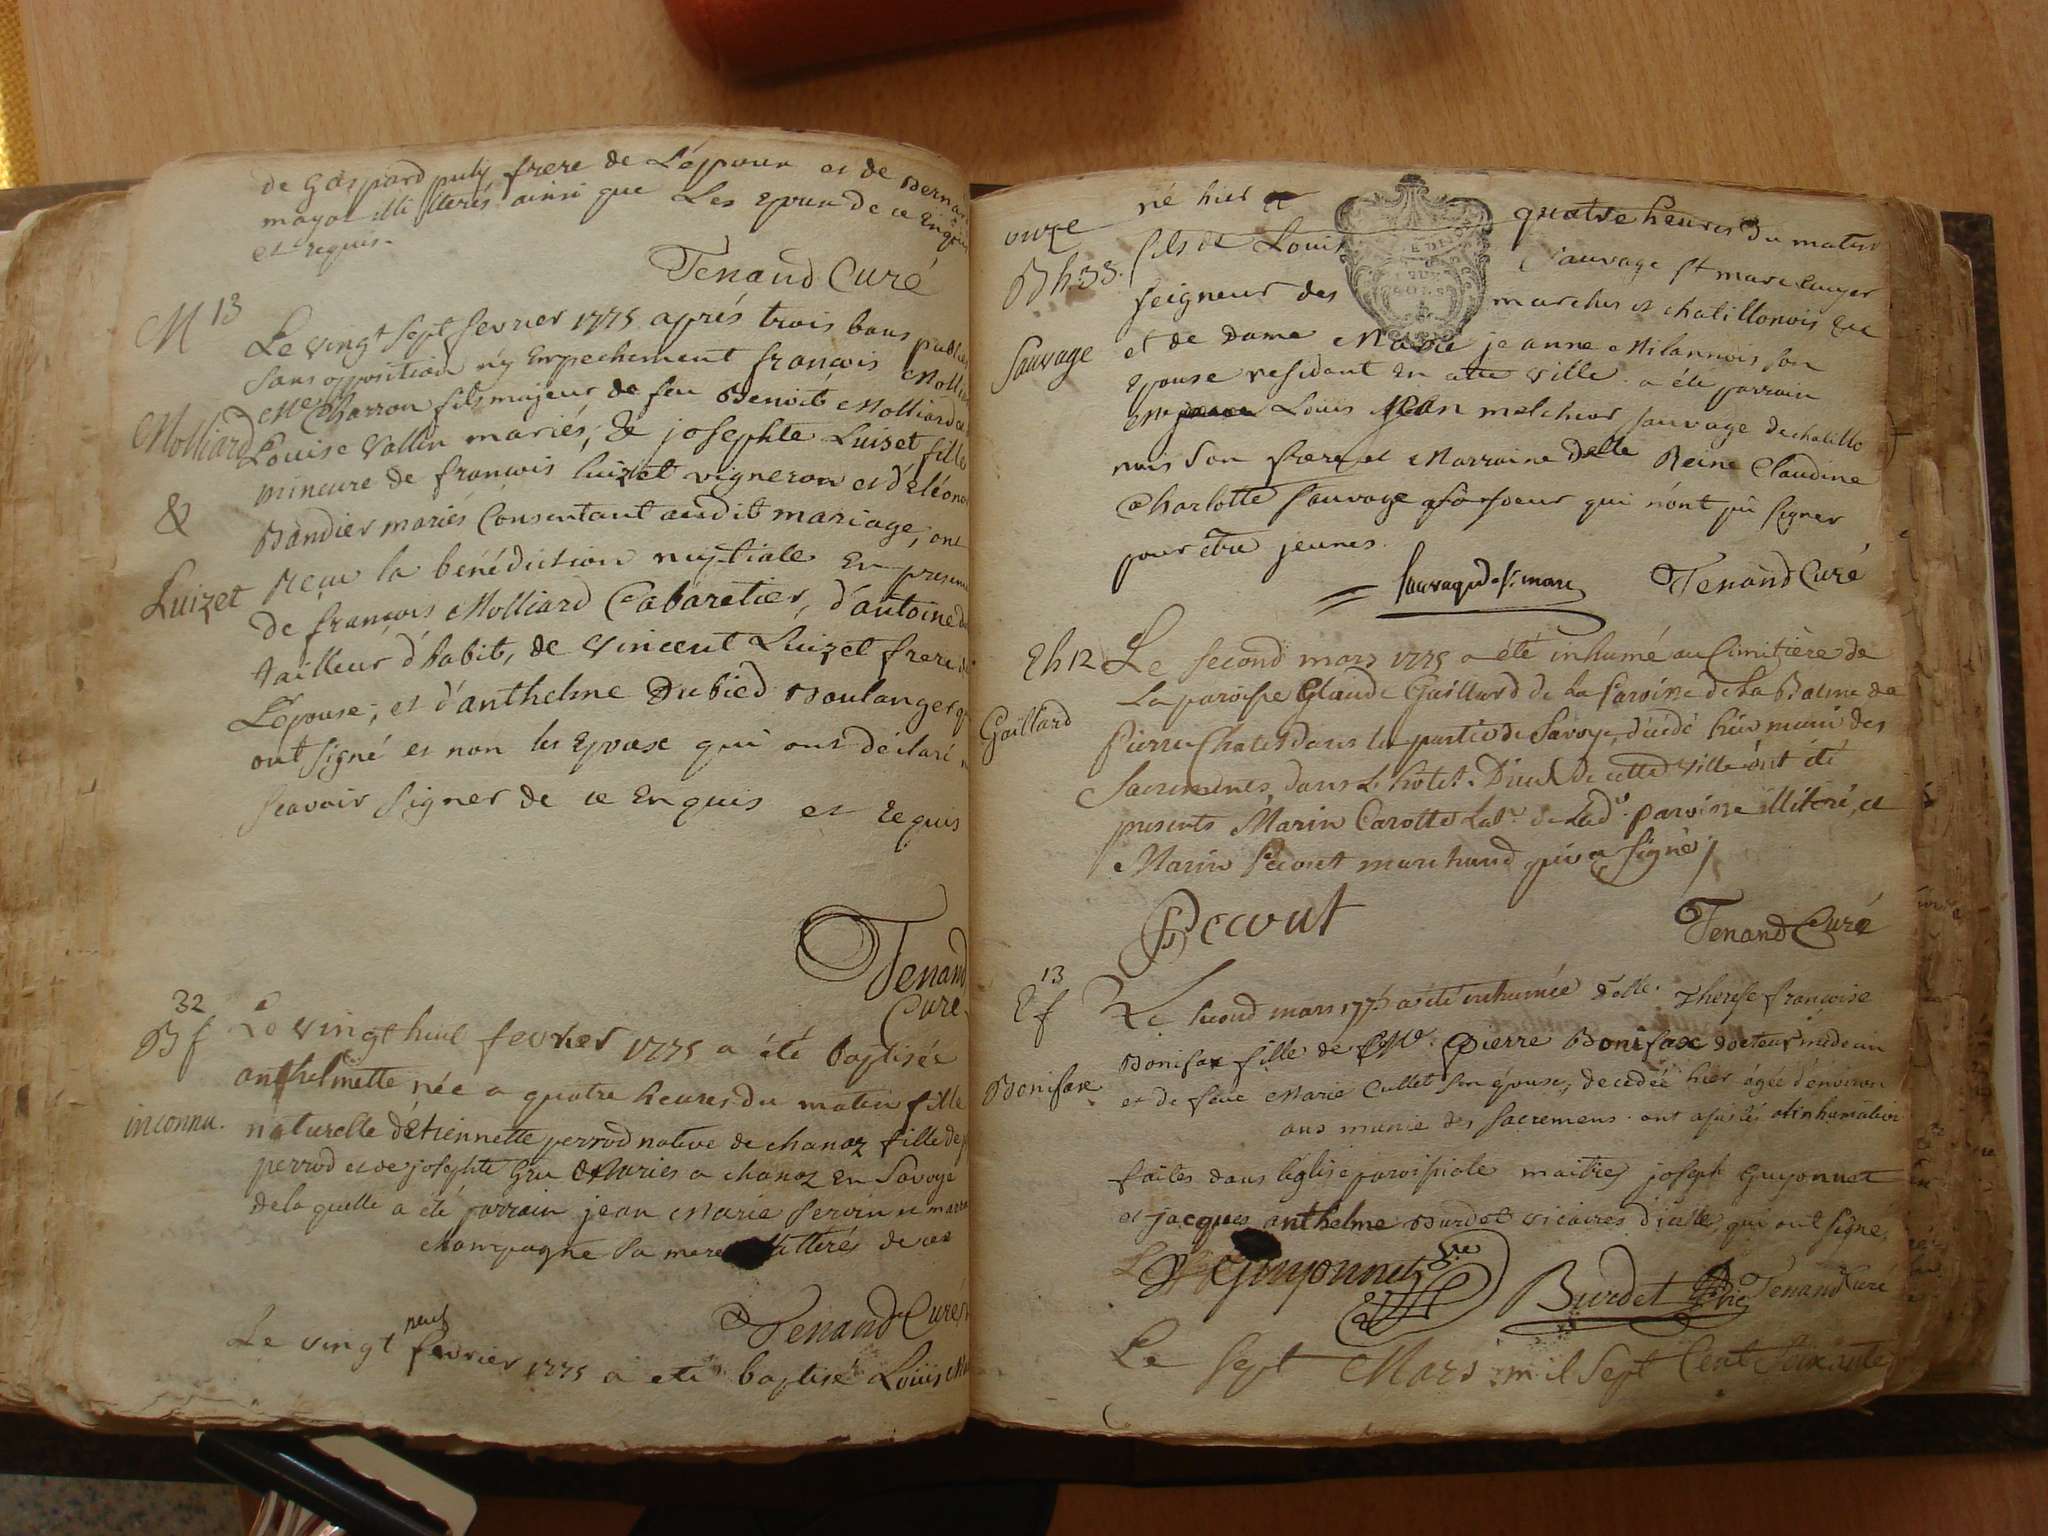 de Gaspard puty frere de L'épouse et de Bernar
mayot illiterés ainsi que Les Epoux de ce Enquis
et requis.
Tenand Curé
M 13
Le vingt sept fevrier 1775 aprés trois bans publiés
sans opposition n'y Empechement françois Molliard
Molliard
Me Charron fils majeur de feu Benoit Molliard et
Louise Vallin mariés; & josephte Luizet fille
mineure de françois Luizet vigneron et d'Eléonor
&
Bandier mariés Consentant audit mariage, ont
Luizet
Reçu la bénédiction nuptiale En presence
de françois Molliard Cabaretier, d'antoine
tailleur d'habit, de Vincent Luizet frere de
L'épouse; et d'anthelme Dubied Boulanger qui
ont signé et non les Epoux qui ont déclaré n
scavoir signer de ce Enquis et Requis
Tenand
Curé
32
Bf
Le vingt huit fevrier 1775 a été baptisée
anthelmette née a quatre heures du matin fille
inconnu.
naturelle d'étiennette perrod native de chanaz fille de
perrod et de josephte Gru Mariés a chanaz En Savoye
de la quelle a été parrain jean Marie Perrin n marra
champagne sa mere illitterés de ce
Tenand Curé
Le vingt neuf fevrier 1775 a eté baptisé Louis M
onze
né hier quatre heures du matin
Bh 33.
fils de Louis Sauvage St marc Ecuyer
seigneur des marches et chatillonois
Sauvage
et de Dame Marie jeanne Milannois son
Epouse residant En cette ville. a été parrain
Louis Jean melchior Sauvage de chatillo
nois son frere et Marraine Delle Reine Claudine
Charlotte Sauvage sa soeur qui n'ont pû signer
pour être jeunes.
Sauvage de St. marc
Tenand Curé
Eh 12
Le second mars 1775 a été inhumé au Cimitière de
La paroisse Claude Gaillard de La Paroisse de La Balme de
Gaillard
Pierre Chatel dans la partie de Savoye, décédé hier muni des
Sacrements dans L'hôtel-Dieu de cette ville ont été
presents Marin Carotte Labr. de Lad. paroisse illiteré, et
Marin Pecout marchand qui a signé
Pecout
Tenand Curé
13
Ef
Le second mars 1775 a été inhumée delle. Therese françoise
Bonifax fille de Pierre Bonifax docteur médecin
Bonifax
et de feüe Marie Cullet son épouse, decedée hier ágée d'environ
ans munie des Sacremens. ont assistés a l'inhumation
faites dans l'église paroissiale maitres joseph Guyonnet
et jacques anthelme Burdet vicaires d'icelle, qui ont signé.
Guyonnet vic
Burdet vic
Tenand Curé
Le sept Mars mil sept Cent Soixante